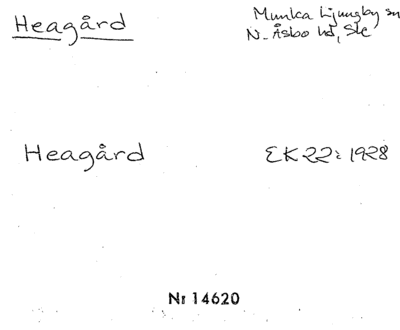 Heagård
Munka Ljungby sn
N. Åsbo hd, Skc
Heagård
EK22: 1928
Nr 14620